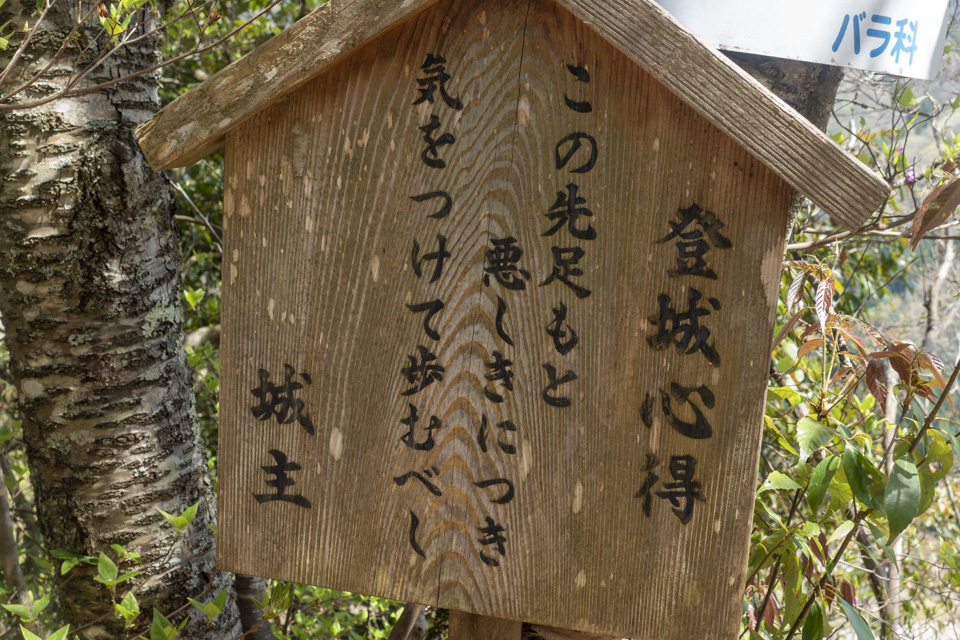 バラ科
登城心得
この先足もと
悪しきにつき
気をつけて歩むべし
城主